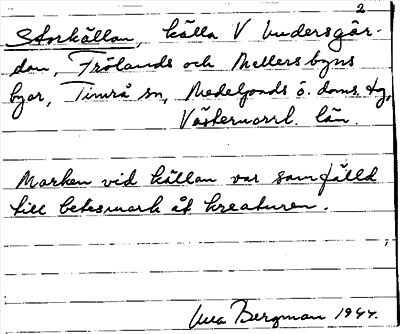 2
Storkällan, källa V Undersgår-
den, Frölands och Mellersbyns
byar, Timrå sn, Medelpads ö. doms. tg,
Västernorrl. län.
Marken vid källan var samfälld
till betesmark åt kreaturen.
Bergman 1944.